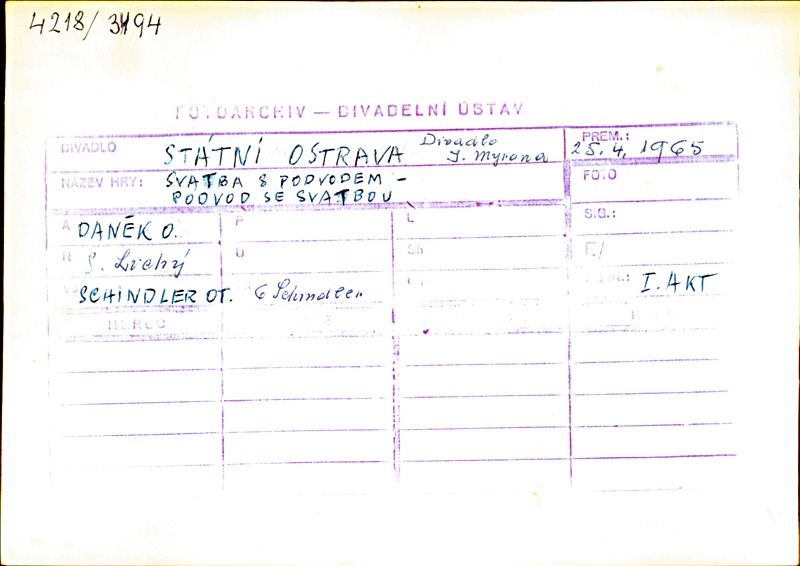 4218/ 3494
FOTOARCHIV — DIVADELNÍ ÚSTAV
DIVADLO STÁTNÍ OSTRAVA Divadlo J. Myrona
PREM.: 25. 4. 1965
NÁZEV HRY: SVATBA S PODVODEM –
PODVOD SE SVATBOU
FOTO
A DANĚK O. P L S.G.:
R S. Lichý D Sh F./
SCHINDLER OT. Schindler I. AKT
HEREC